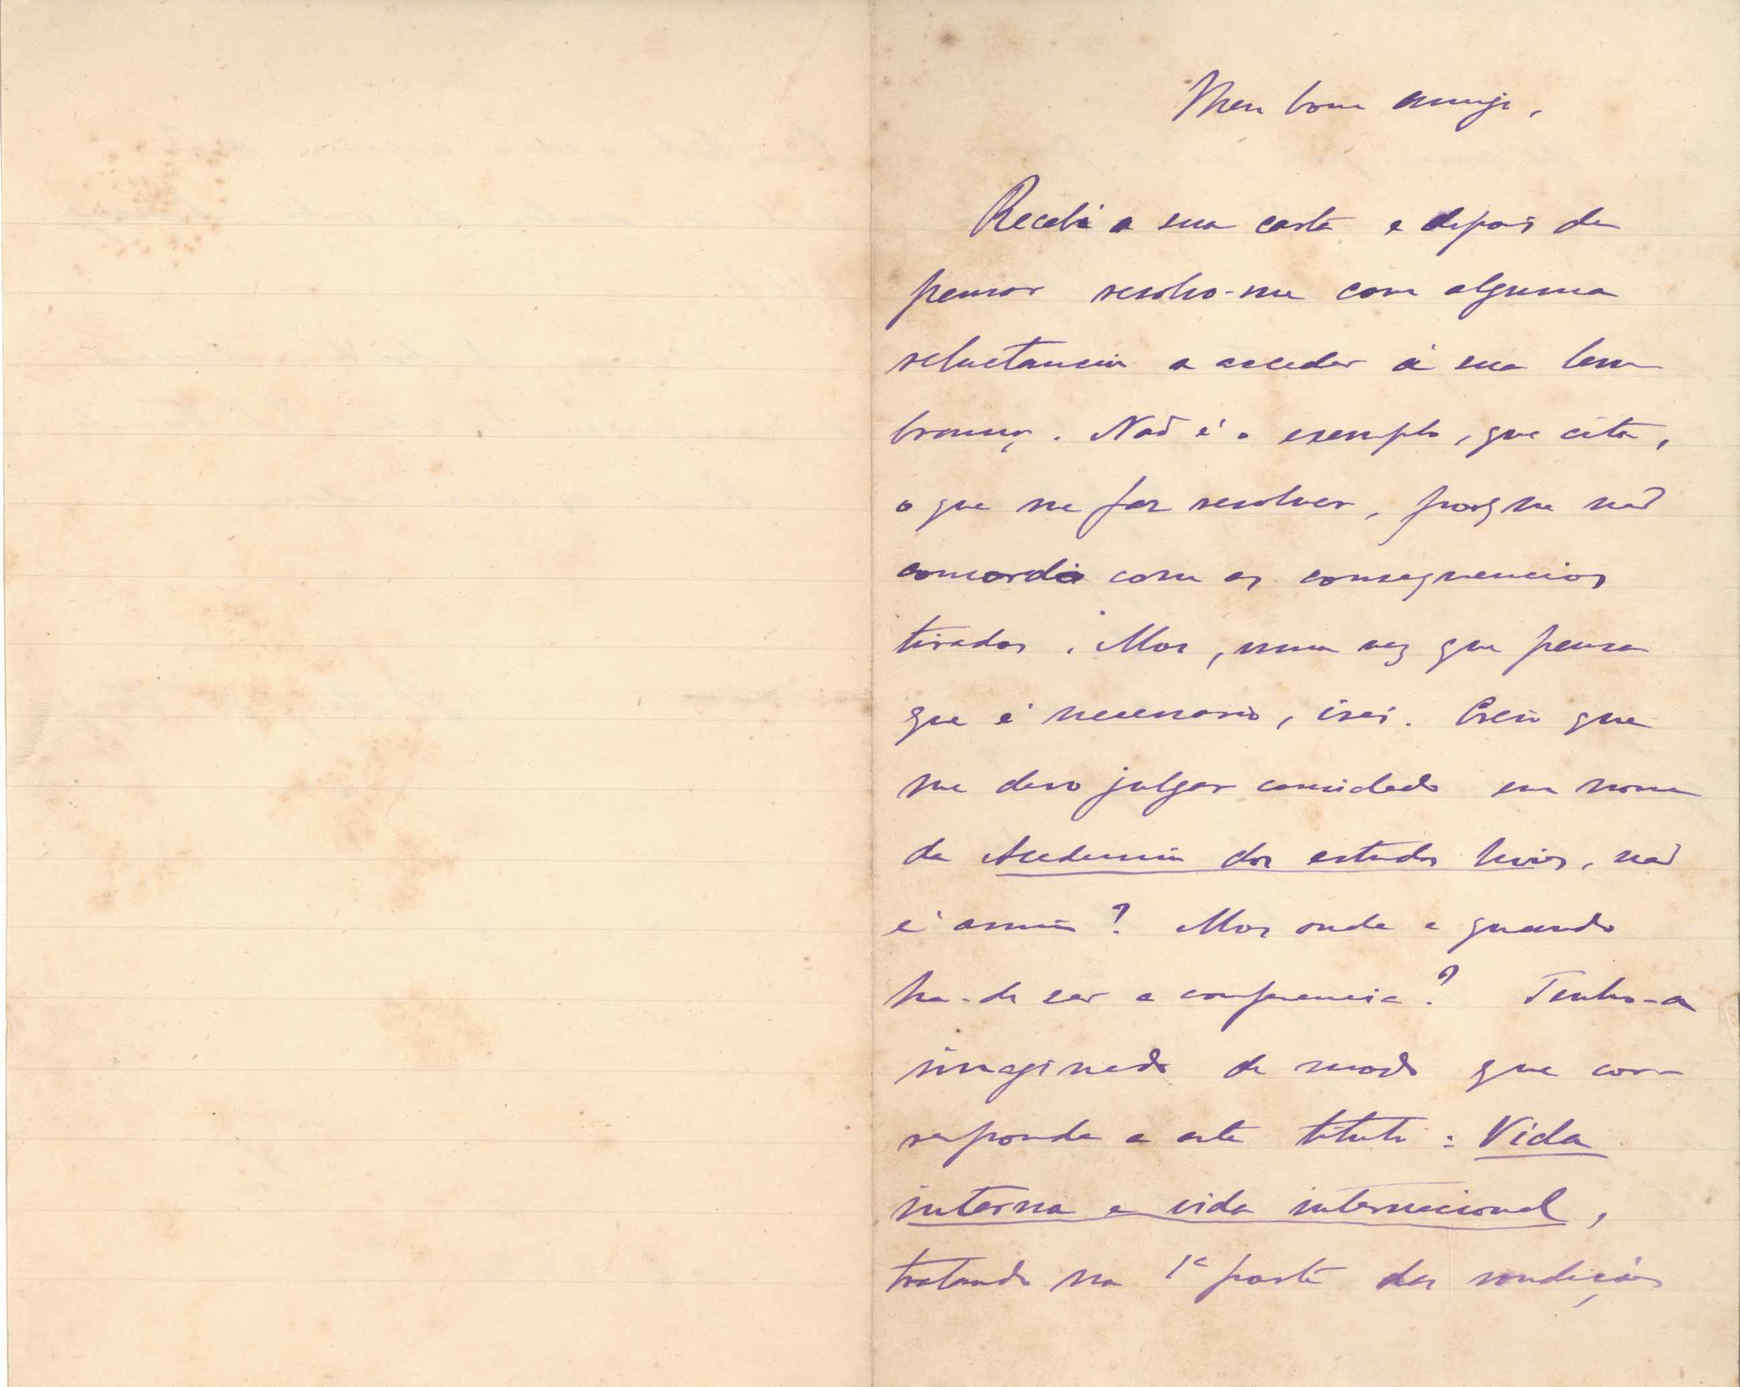 Meu bom amigo,
Recebi a sua carta e depois de
pensar resolvo-me com alguma
reluctancia a acceder á sua lem
brança. Não é o exemplo, que cita,
o que me faz resolver, porque não
concordo com as consequencias
tiradas. Mas, uma vez que pensa
que é necessario, irei. Creio que
me devo julgar convidado em nome
da Academia dos estudos livres, não
é assim? Mas onde e quando
ha-de ser a conferencia? Tenho-a
imaginado de modo que cor-
responda a este titulo: Vida
interna e vida internacional,
tratando na 1ª parte das condições